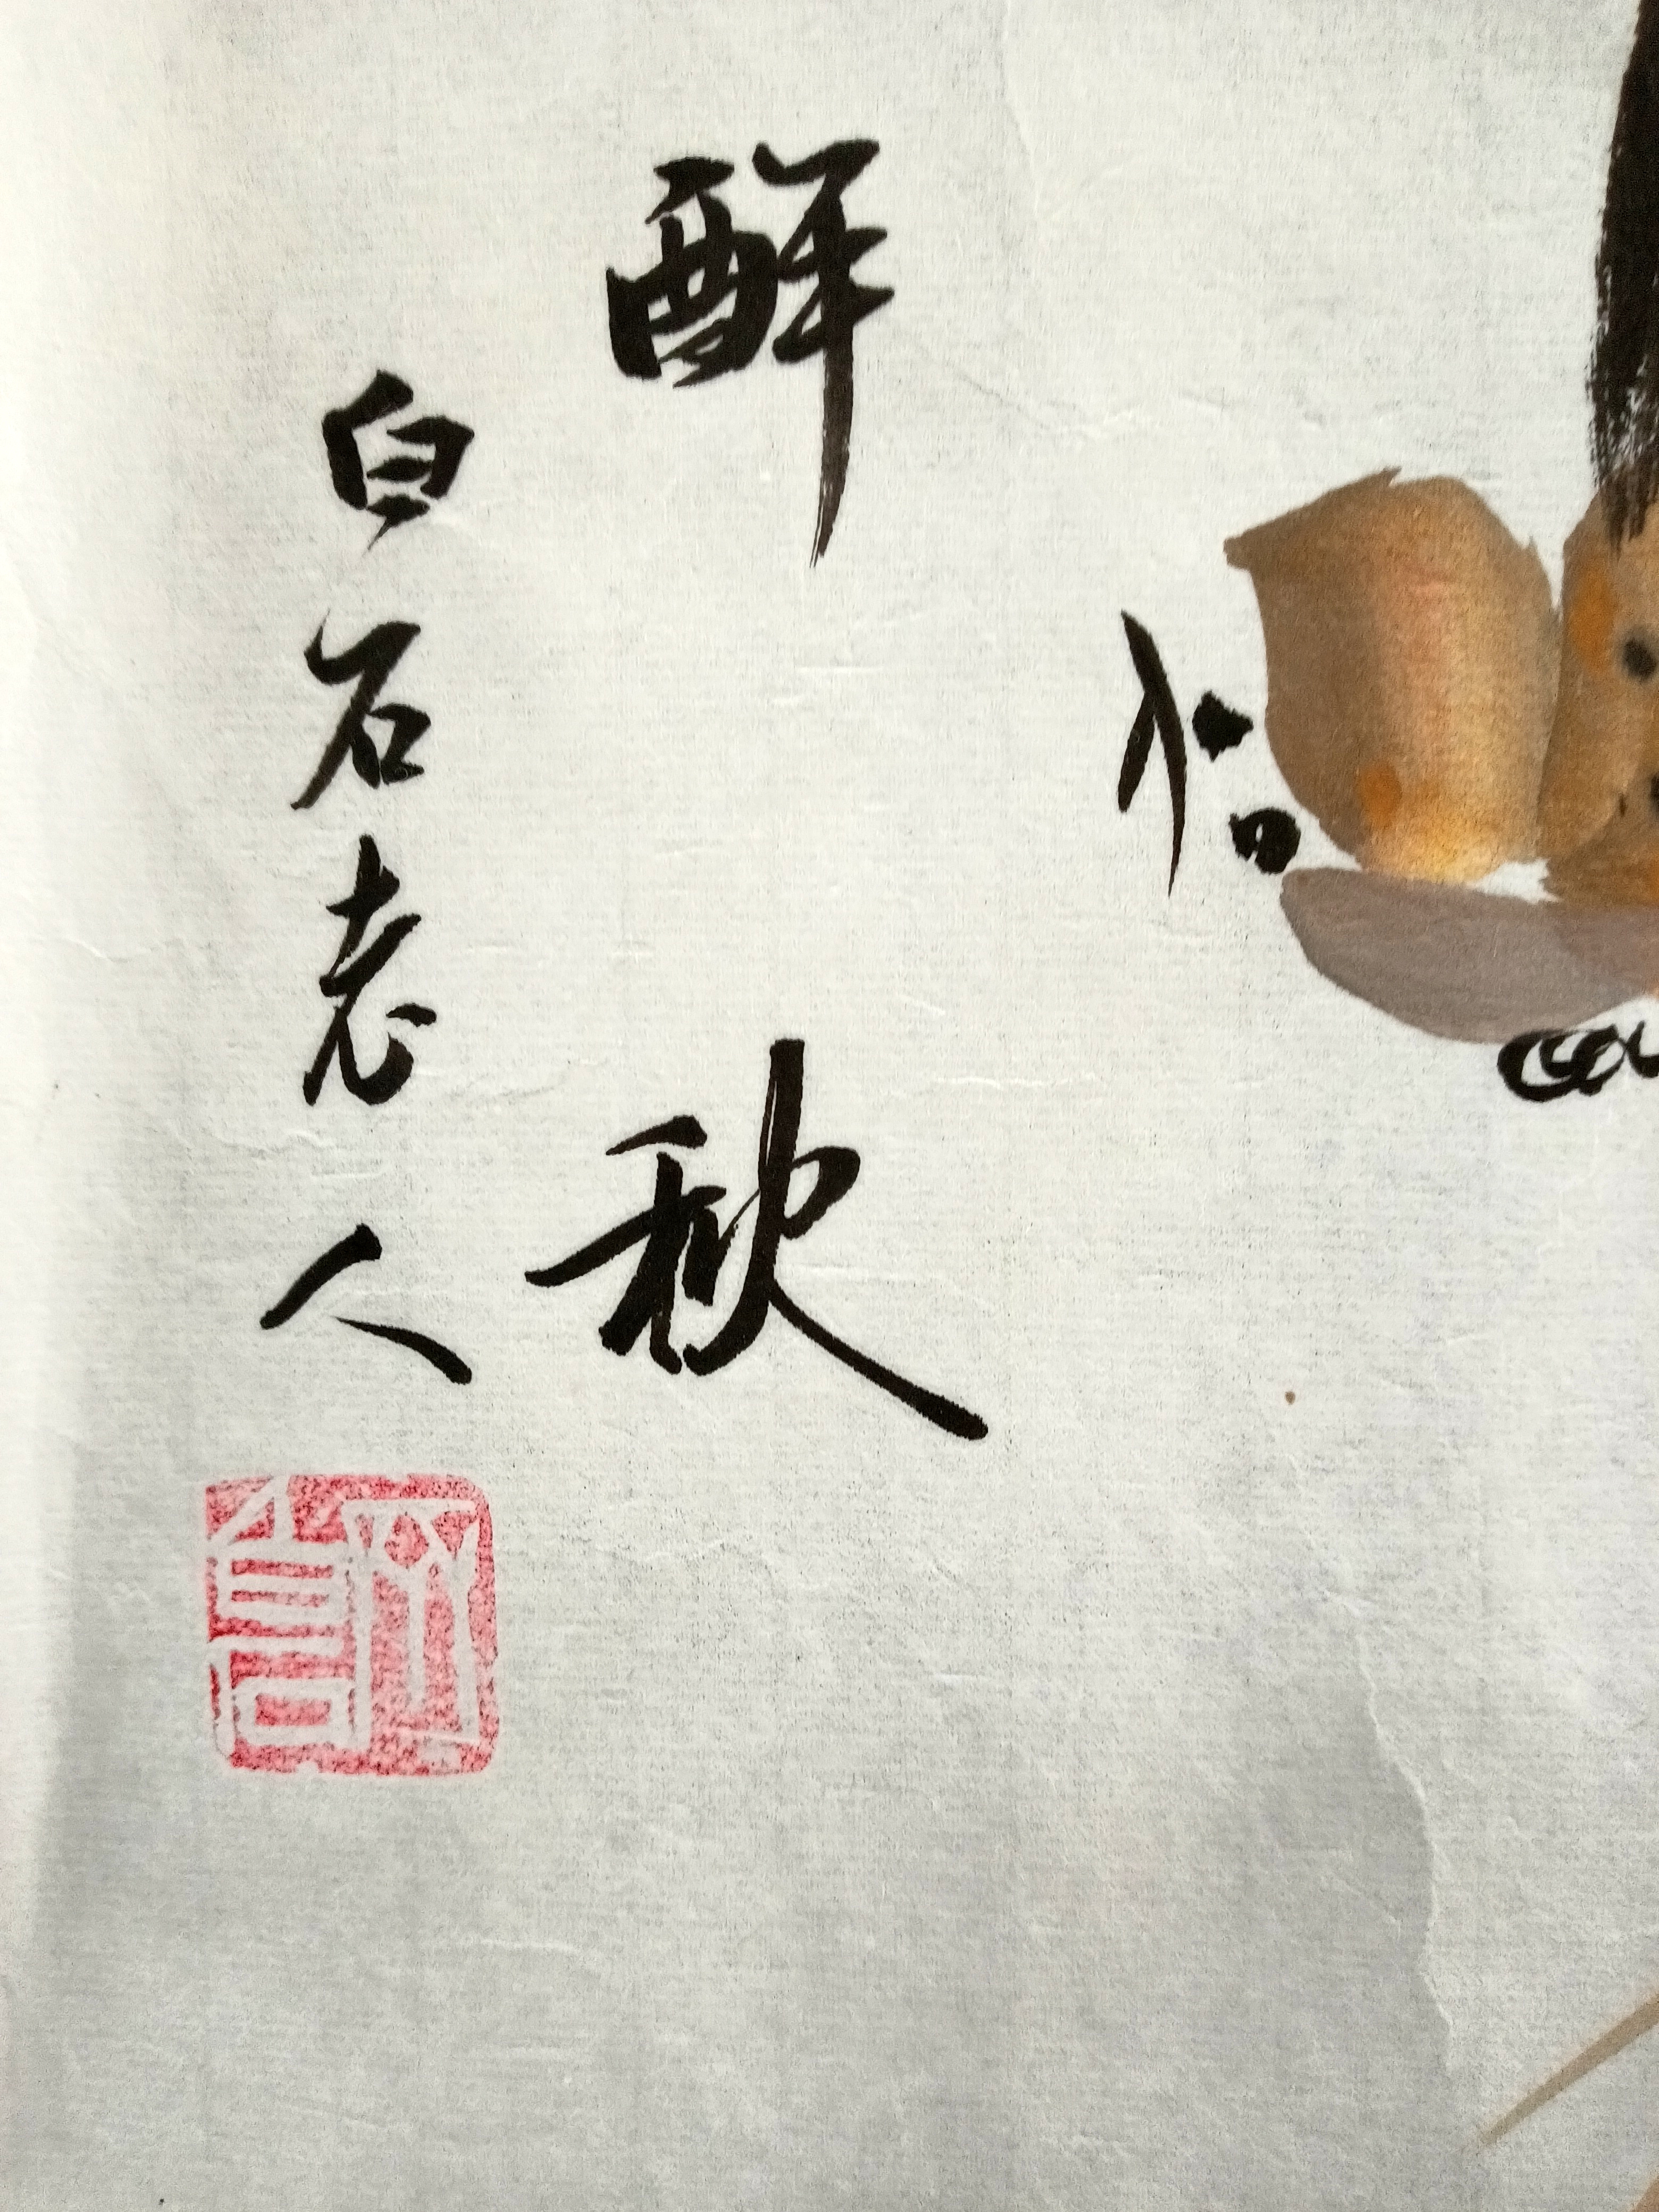 醉秋
白石老人
齊白石